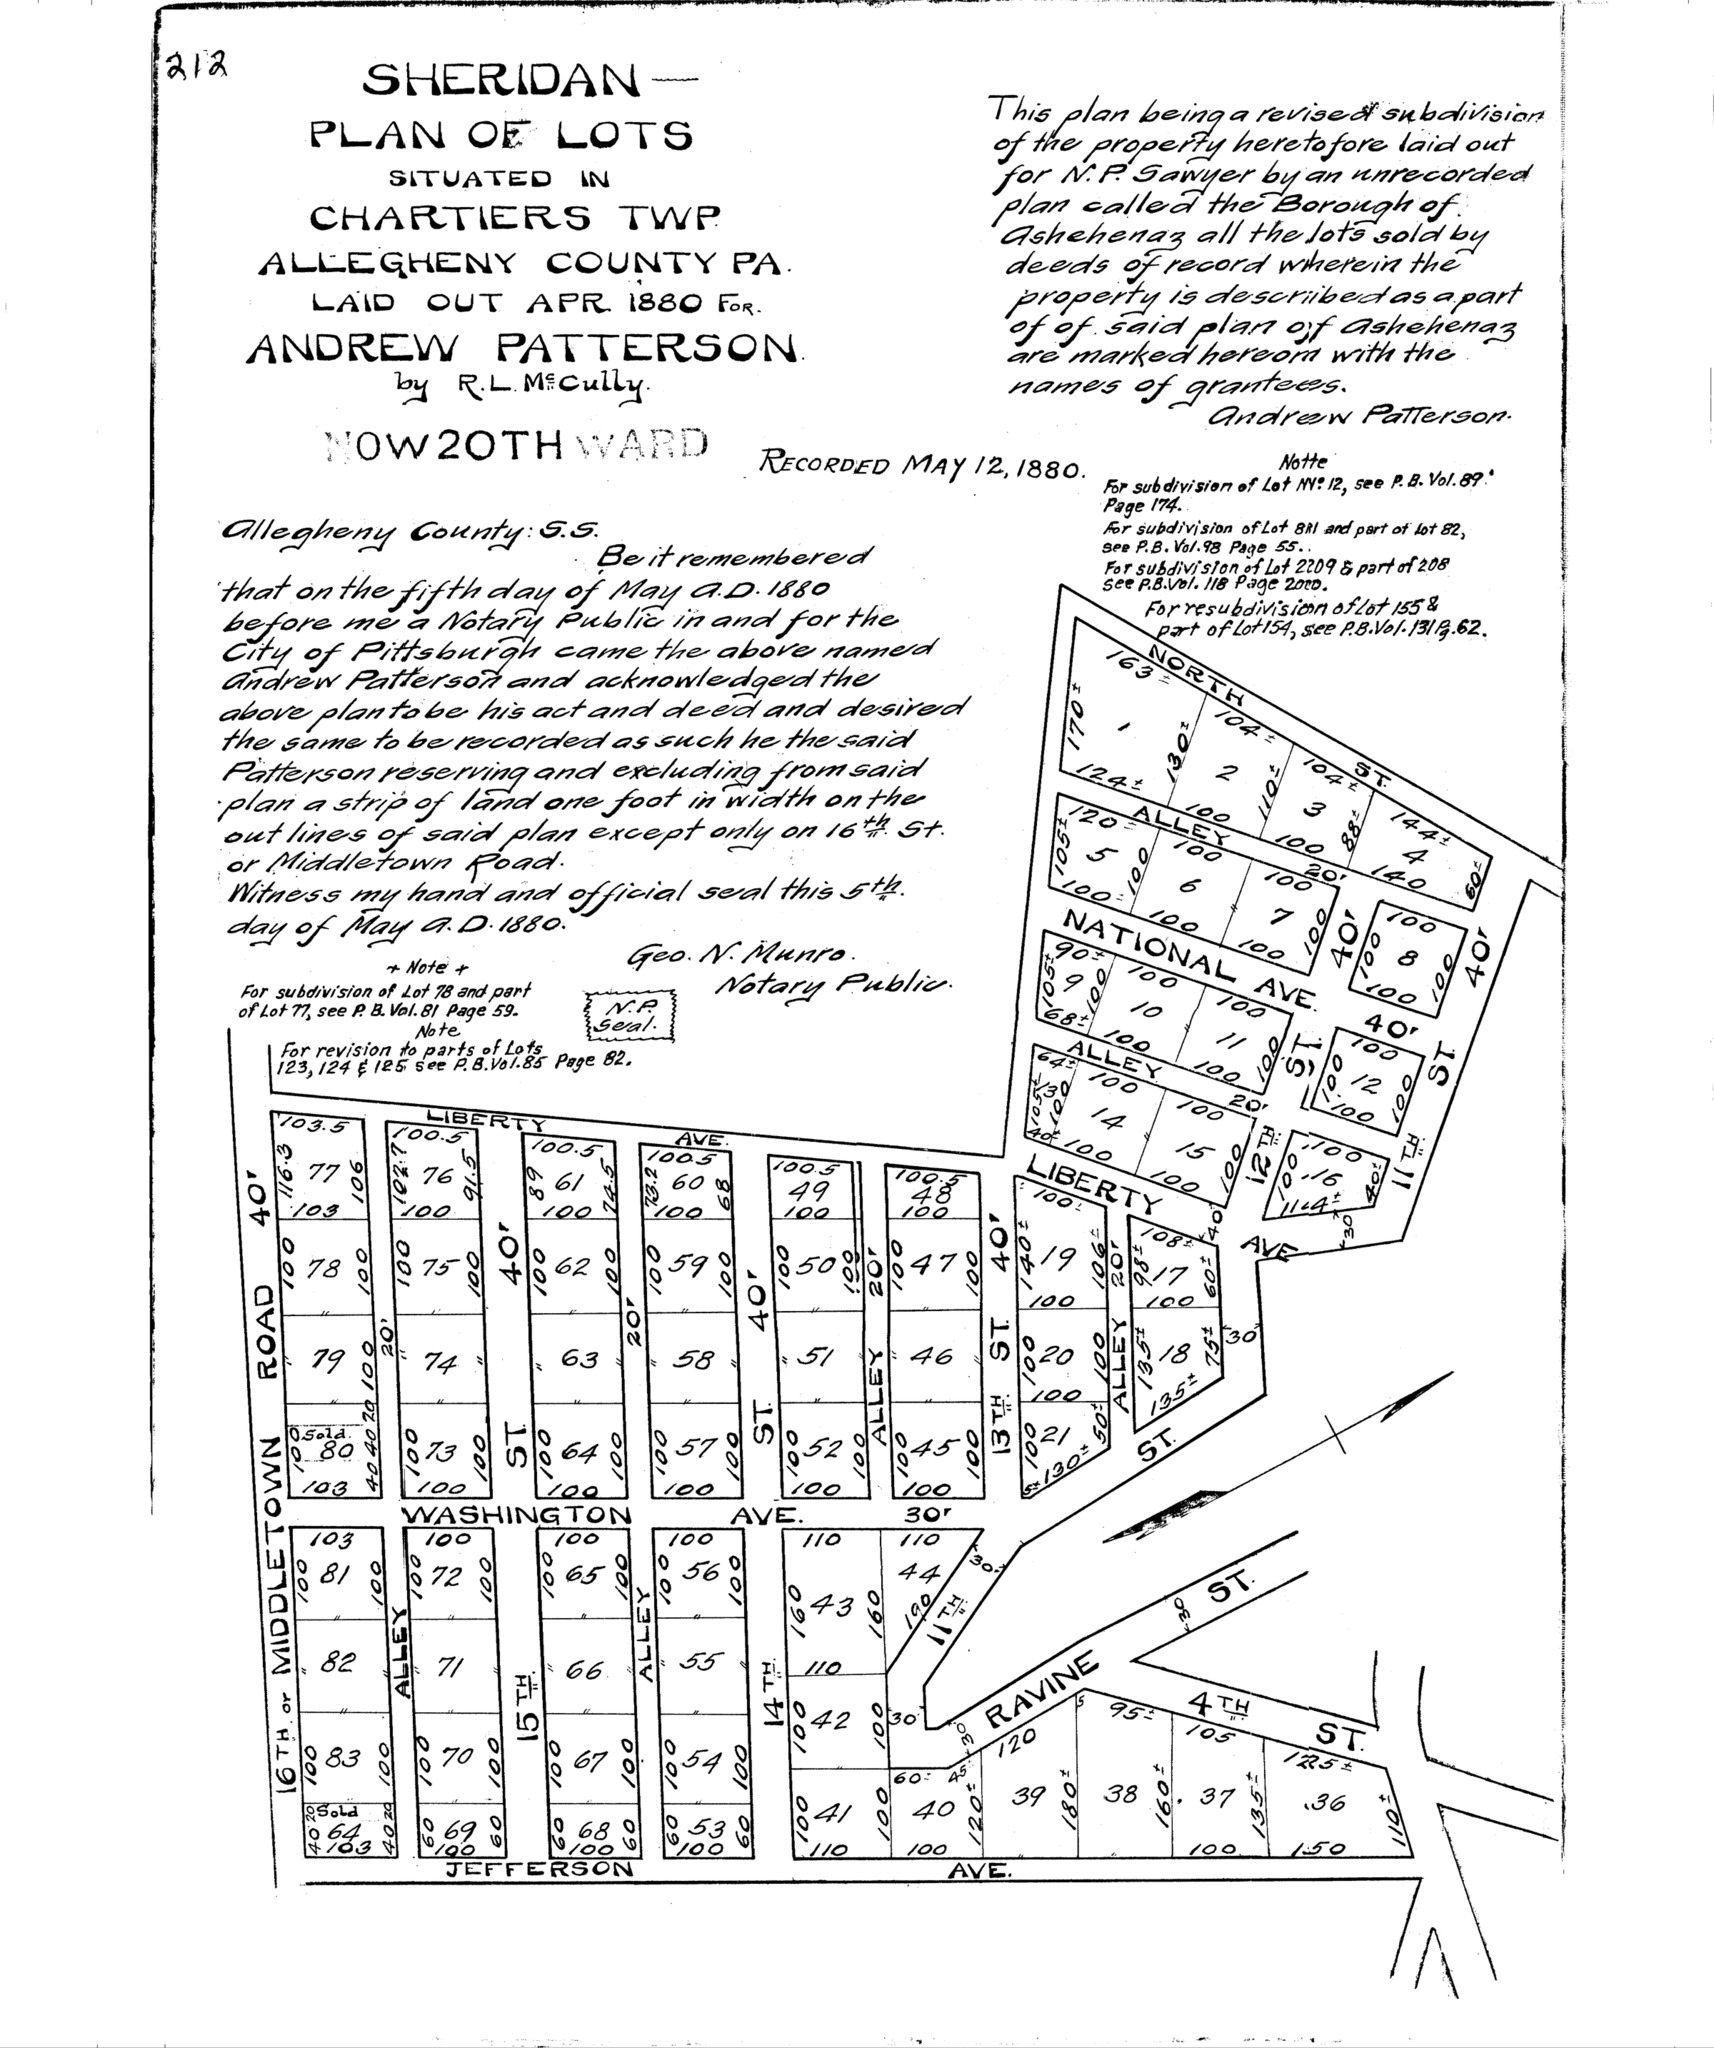 212
SHERIDAN—
PLAN OF LOTS
SITUATED IN
CHARTIERS TWP.
ALLEGHENY COUNTY PA.
LAID OUT APR. 1880 FOR.
ANDREW PATTERSON.
by R.L. McCully.
NOW 20TH WARD
This plan being a revised subdivision
of the property heretofore laid out
for N.P. Sawyer by an unrecorded
plan called the Borough of
Ashehenaz all the lots sold by
deeds of record wherein the
property is described as a part
of of said plan of Ashehenaz
are marked hereom with the
names of grantees.
Andrew Patterson.
RECORDED MAY 12, 1880.
Notte
For subdivision of Lot NNo. 12, see P.B. Vol. 89.
Page 174.
For subdivision of Lot 811 and part of Lot 82,
see P.B. Vol. 98 Page 55..
For subdivision of Lot 2209 & part of 208
see P.B. Vol. 118 Page 200.
For resubdivision of Lot 155 &
part of Lot 154, see P.B. Vol. 131 Pg. 62.
Allegheny County: S.S.
Be it remembered
that on the fifth day of May A.D. 1880
before me a Notary Public in and for the
City of Pittsburgh came the above named
Andrew Patterson and acknowledged the
above plan to be his act and deed and desired
the same to be recorded as such he the said
Patterson reserving and excluding from said
plan a strip of land one foot in width on the
out lines of said plan except only on 16th. St.
or Middletown Road.
Witness my hand and official seal this 5th.
day of May A.D. 1880.
Geo. N. Munro.
Notary Public.
N.P.
Seal.
+ Note +
For subdivision of Lot 78 and part
of Lot 77, see P.B. Vol. 81 Page 59.
Note
For revision to parts of Lots
123, 124 & 125 see P.B. Vol. 85 Page 82.
NORTH ST.
163± 104± 104± 144±
170± 1 130± 2 110± 3 88± 4 60±
124± 100 100 140
ALLEY 20'
120± 100 100
105± 5 100 6 7 100
100± 100 100
40' 100 40'
100 8 100
100
NATIONAL AVE. 40'
90± 100 100
105± 9 100 10 11 100
68± 100 100
ST. 100 ST.
100 12 100
100
ALLEY 20'
64± 100 100
105± 13 100 14 15 100
40± 100 100
12TH 100 11TH
100 16 40±
114±
30'
LIBERTY AVE.
40'
LIBERTY AVE.
103.5 100.5 100.5 100.5 100.5 100.5 100± 108±
116.3 77 106 102.7 76 91.5 89 61 74.5 73.2 60 68 49 48
103 100 100 100 100 100
140± 19 106± 98± 17 60±
100 100
100 78 100 100 75 100 100 62 100 100 59 100 100 50 100 100 47 100
79 100 74 63 58 51 46 100 20 100 135± 18 75± 30'
100 135±
Sold.
100 80 40 40 20
100 73 100 100 64 100 100 57 100 100 52 100 100 45 100 100 21 50±
103 100 100 100 100 100 5± 130±
40' 20' 40' 20' 40' 20' 40' 20'
ST. ST. ALLEY 13TH ST. ALLEY ST.
16TH. or MIDDLETOWN ROAD 40'
WASHINGTON AVE. 30'
103 100 100 100 110 110
100 81 100 100 72 100 100 65 100 100 56 100 160 43 160 44 190 30'
82 71 66 55 110
ALLEY 15TH ALLEY 14TH 11TH
100 42 100 30'
100 83 100 100 70 100 100 67 100 100 54 100
Sold
40 20 64 40 20
103
60 69 60 60 68 60 60 53 60
100 100 100
100 41 100
110
60± 45 30
40 120±
100
120 5 95± 105 125±
39 180± 38 160± 37 135± 36 110±
100 150
RAVINE ST. 30
4TH ST.
JEFFERSON AVE.